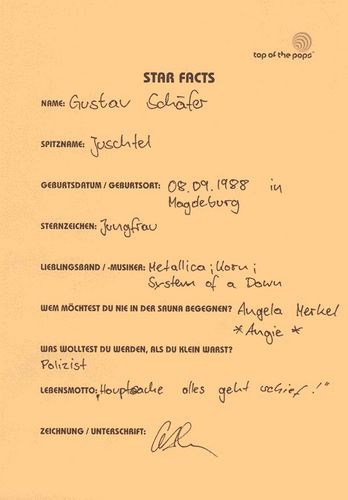 top of the pops
STAR FACTS
NAME: Gustav Schäfer
SPITZNAME: Juschtel
GEBURTSDATUM / GEBURTSORT: 08.09.1988 in
Magdeburg
STERNZEICHEN: Jungfrau
LIEBLINGSBAND / -MUSIKER: Metallica ; Korn ;
System of a Down
WEM MÖCHTEST DU NIE IN DER SAUNA BEGEGNEN? Angela Merkel
*Angie*
WAS WOLLTEST DU WERDEN, ALS DU KLEIN WARST?
Polizist
LEBENSMOTTO: „Hauptsache alles geht schief!"
ZEICHNUNG / UNTERSCHRIFT: